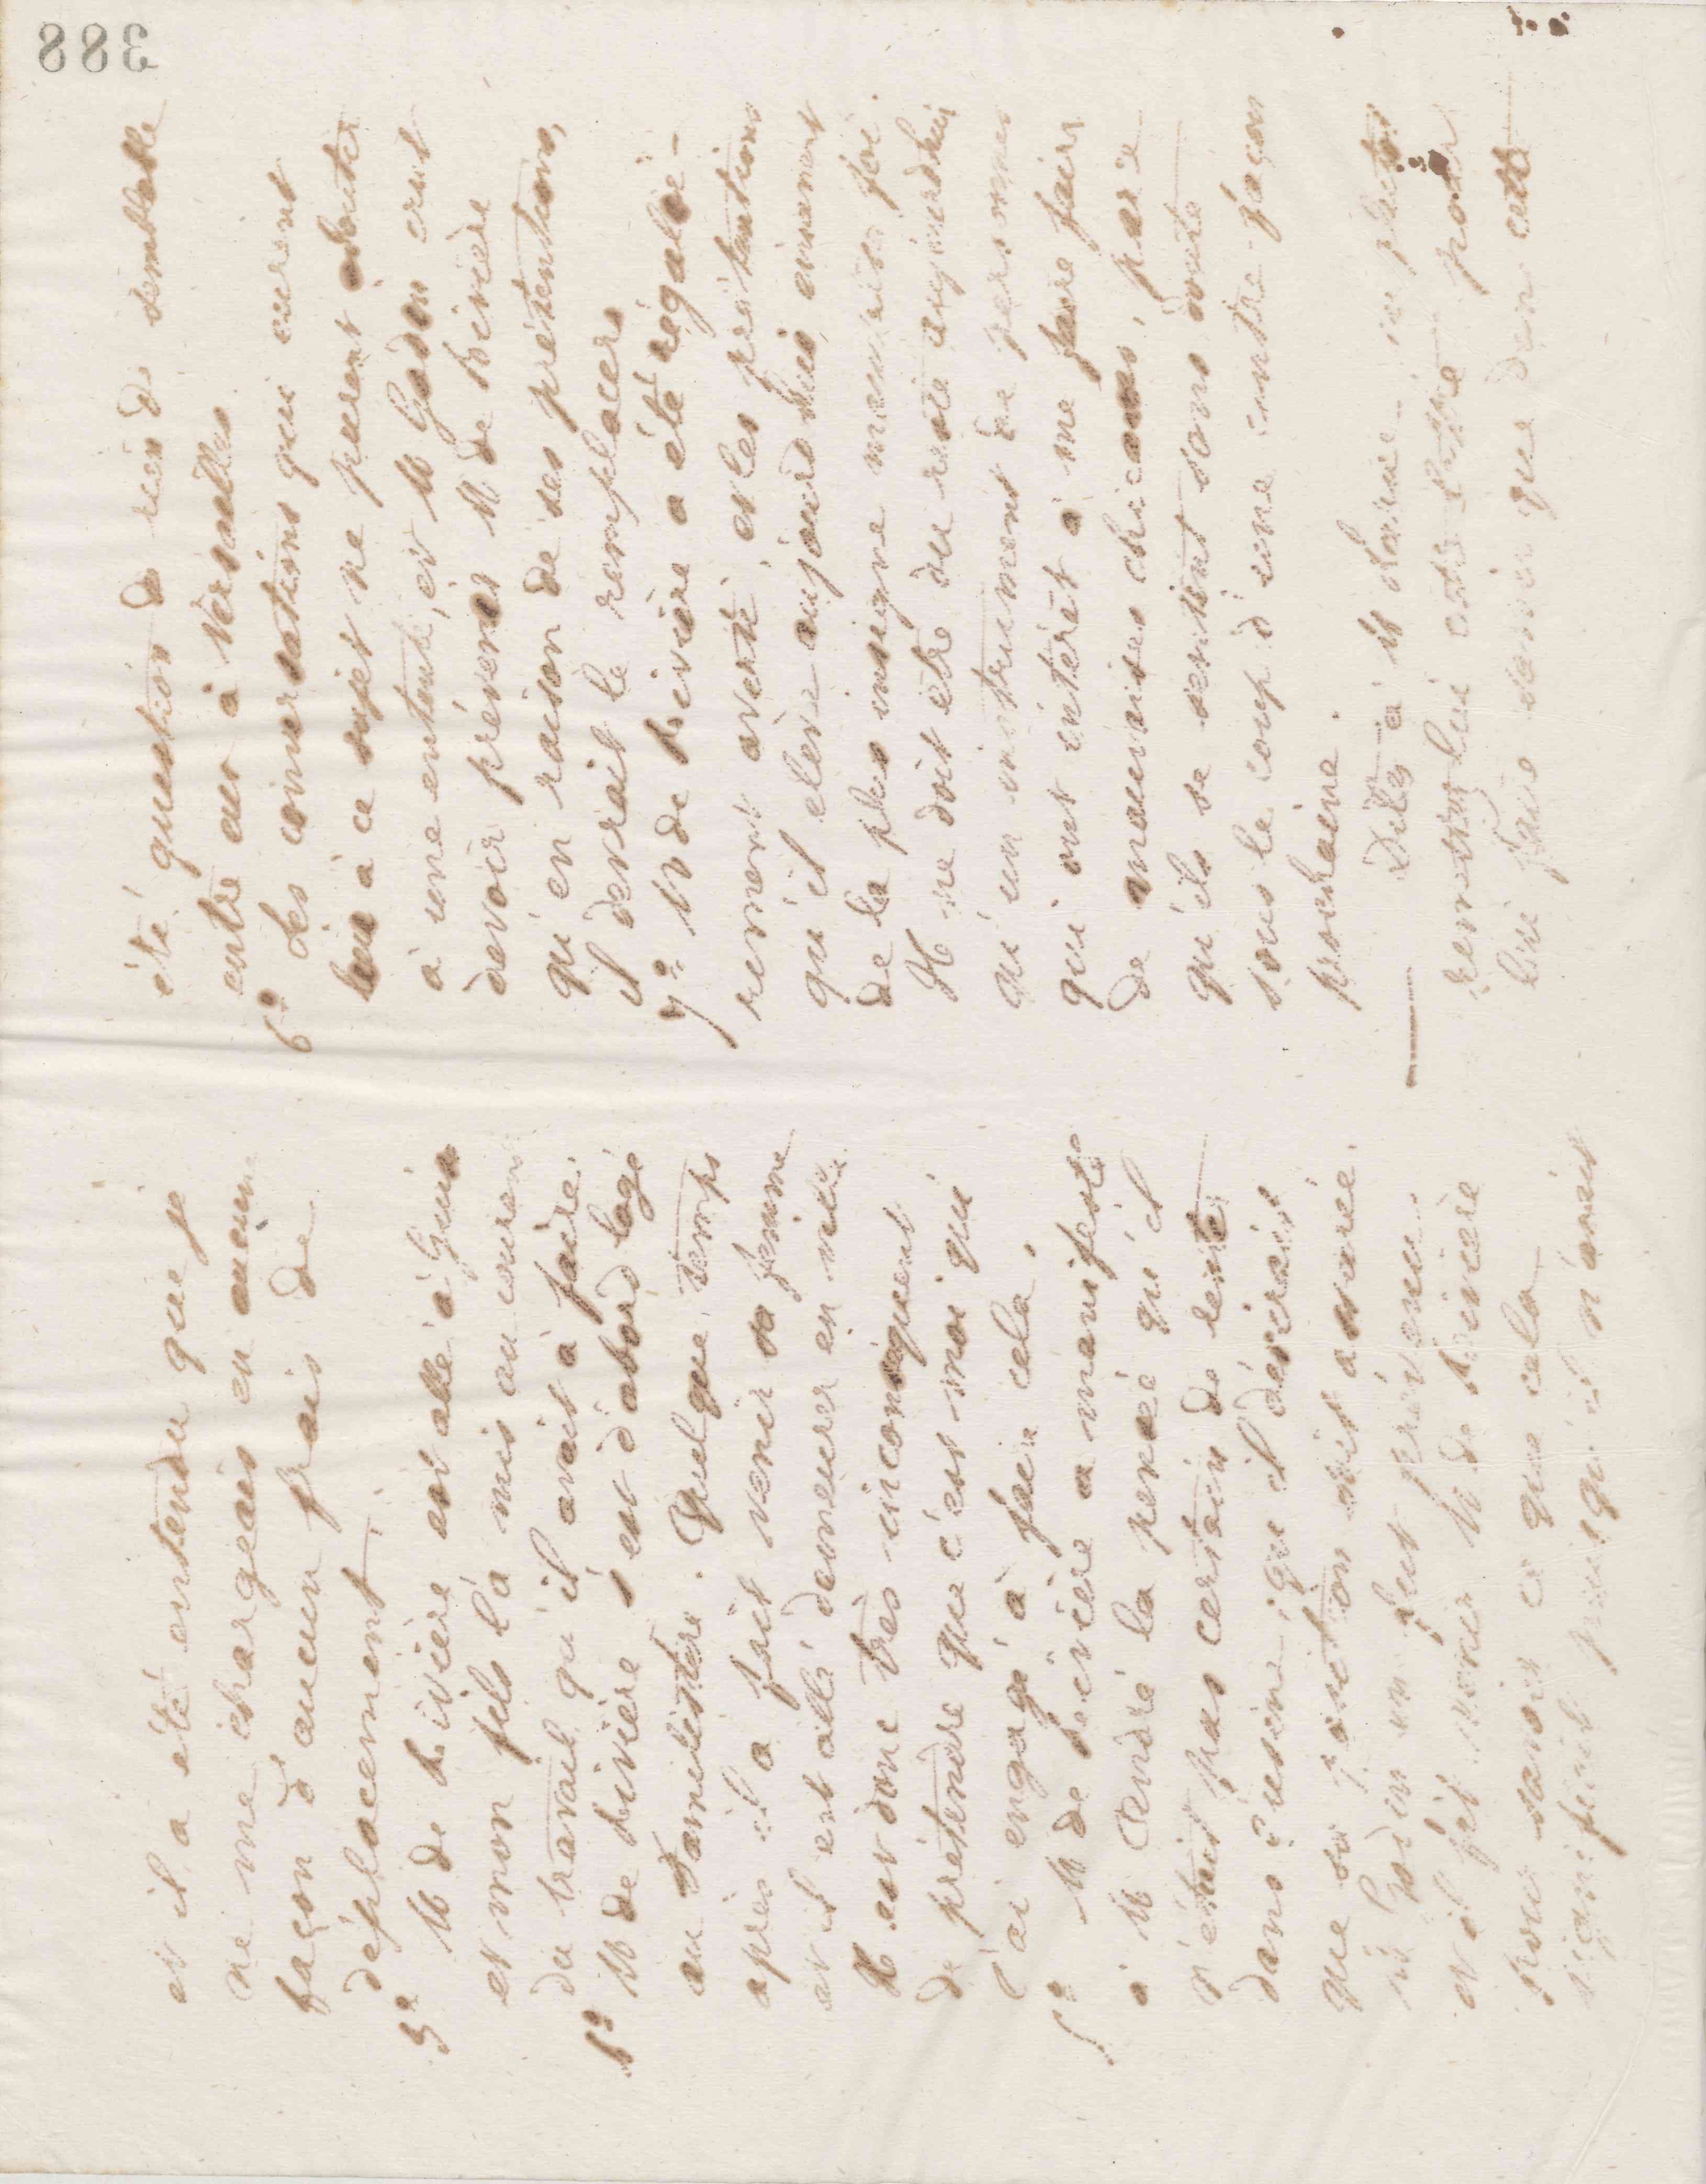 388
et il a été entendu que je
ne me chargeais en aucune
façon d'aucun frais de
déplacement.
3° M de Rivière est allé à Guise
et mon fils l'a mis au courant
du travail qu'il avait à faire.
M de Rivière s'est d'abord logé
au Familistère. Quelque temps
après il a fait venir sa femme
et il est allé demeurer en ville.
Il est donc très inconséquent
de prétendre que c'est moi qui
l'ai engagé à faire cela.
5° M de Rivière a manifesté
à M André la pensée qu'il
n'était pas certain de rester
dans l'usine, qu'il désirait
que sa position soit assurée.
M Godin en fut prévenu
et il fit venir M de Rivière
pour savoir ce que cela
signifiait puisqu'il n'avait
été question de rien de semblable
entre eux à Versailles
6° Les conversations qui eurent
lieu à ce sujet ne purent aboutir
à une entente, et M Godin crut
devoir prévenir M de Rivière
qu'en raison de ses prétentions,
il devrait le remplacer
7° M de Rivière a été réguliè-
rement averti, et les prétentions
qu'il élève aujourd'hui
de la plus insigne mauvaise foi.
Il ne doit être du reste aujourd'hui
qu'un instrument de personnes
qui ont intérêt à me faire faire
de mauvaises chicanes, parce
qu'ils se sentent sans doute
sous le coup d'une contre-façon
prochaine.
Dites à M
cette lettre pour
lui faire que dans cette